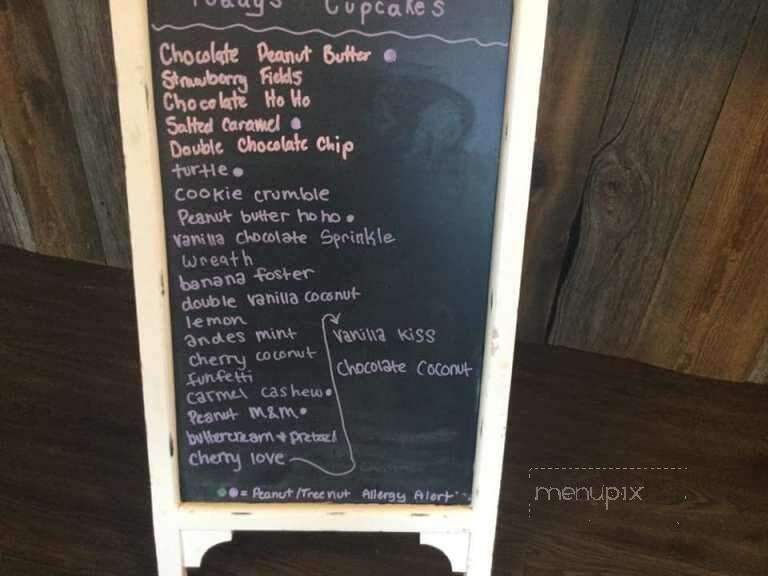 Todays Cupcakes
Chocolate Peanut Butter
Strawberry Fields
Chocolate Ho Ho
Salted Caramel
Double Chocolate Chip
turtle
cookie crumble
Peanut butter ho ho
Vanilla Chocolate Sprinkle
Wreath
banana foster
double vanilla coconut
lemon
andes mint
cherry coconut
funfetti
carmel cashew
Peanut M&M
buttercream + pretzel
cherry love
Vanilla Kiss
Chocolate Coconut
= Peanut/Treenut Allergy Alert
menupix